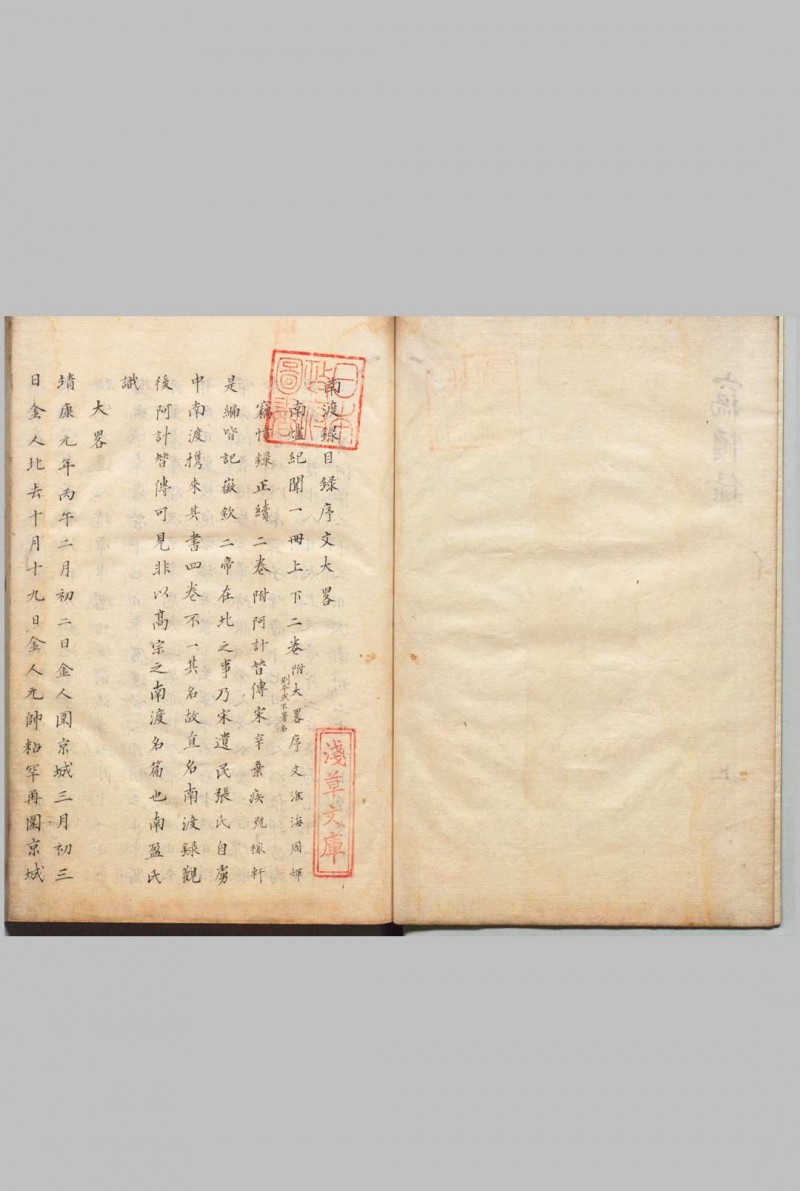 南渡錄目錄序文大畧
南燼紀聞一冊上下二卷附大畧序文淮海周煇
竊憤錄正續二卷附阿計替傳宋辛棄疾號稼軒
是編皆記徽欽二帝在北之事乃宋遺民張氏自虜
中南渡携來其書四卷不一其名故直名南渡錄觀
後阿計替傳可見非以髙宗之南渡名篇也南盈氏
識
大畧
靖康元年丙午二月初二日金人圍京城三月初三
日金人北去十月十九日金人元帥粘罕再圍京城
淺草文庫
圖